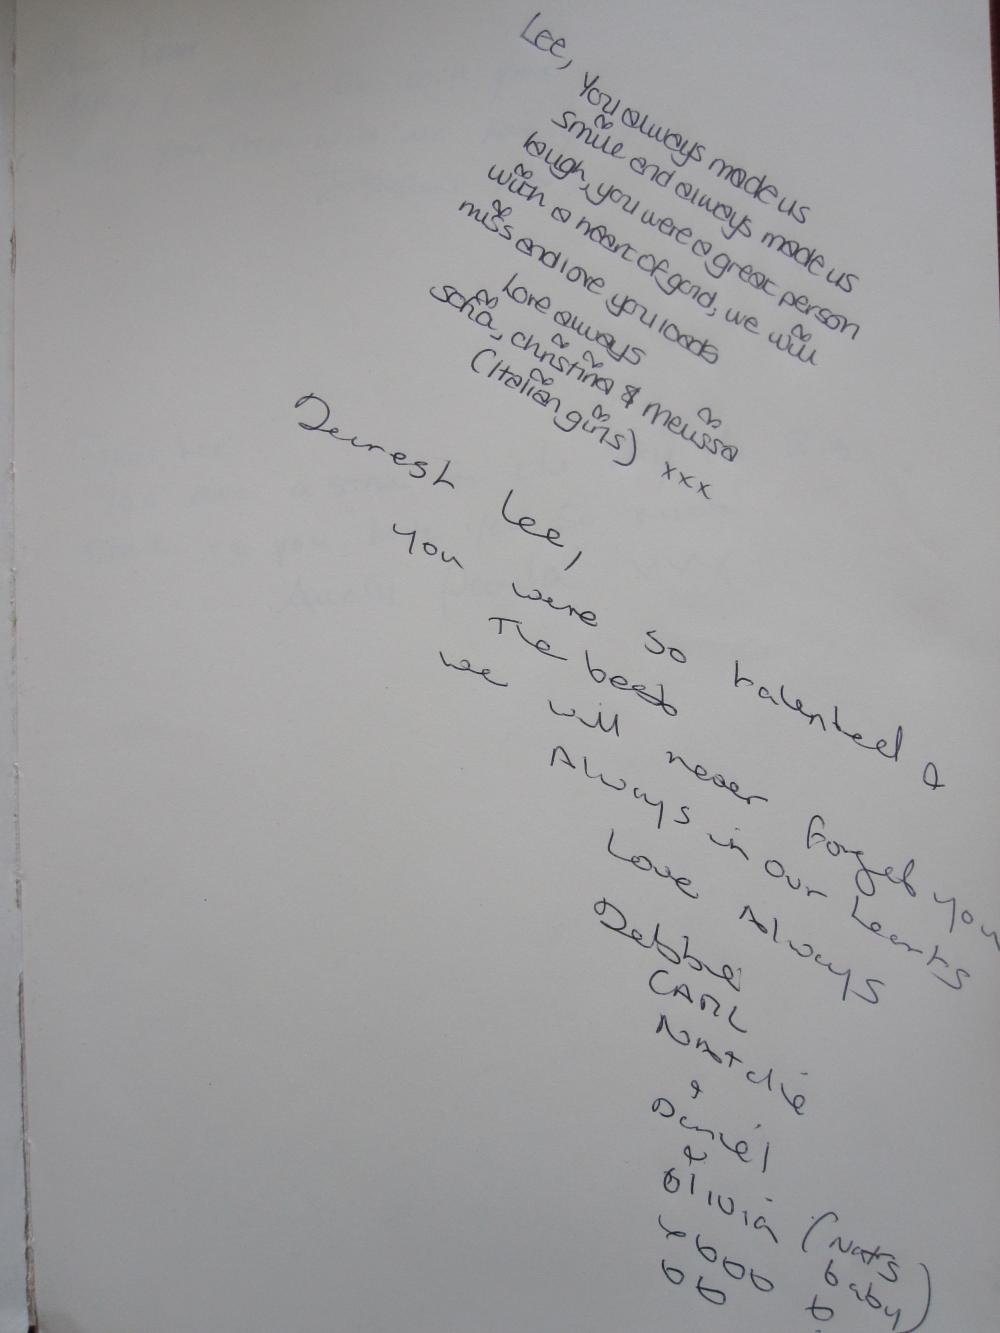 Lee,
You always made us
smile and always made us
laugh, you were a great person
with a heart of gold, we will
miss and love you loads
Love always
Sofia, Christina & Melissa
(Italian girls) xxx
Dearest Lee,
You were so talented &
The best
we will never forget you
Always in our hearts
Love Always
Debbie
CARL
Natalie
+
Daniel
&
Olivia (Nats
baby)